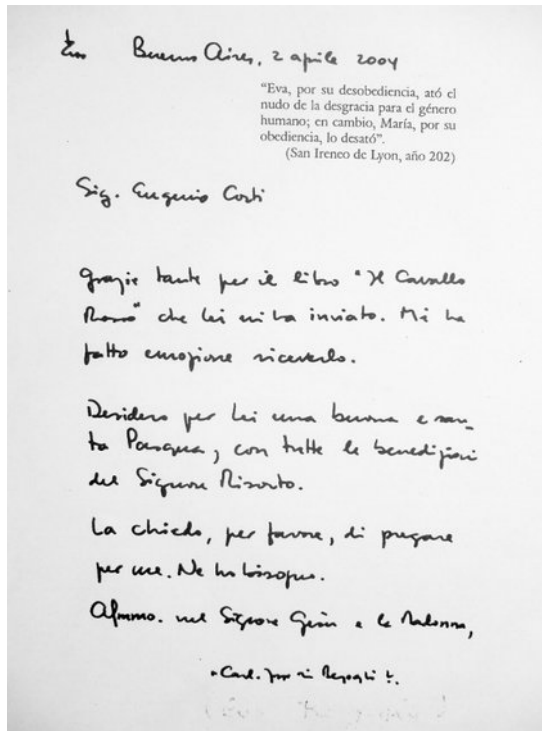 Buenos Aires, 2 aprile 2004
“Eva, por su desobediencia, ató el
nudo de la desgracia para el género
humano; en cambio, María, por su
obediencia, lo desató”.
(San Ireneo de Lyon, año 202)
Sig. Eugenio Corti
Grazie tante per il libro "Il Cavallo
Rosso" che lei mi ha inviato. Mi ha
fatto emozione riceverlo.
Desidero per lei una buona e san_
ta Pasqua, con tutte le benedizioni
del Signore Risorto.
La chiedo, per favore, di pregare
per me. Ne ho bisogno.
Affmmo. nel Signore Gesù e la Madonna,
+Card.